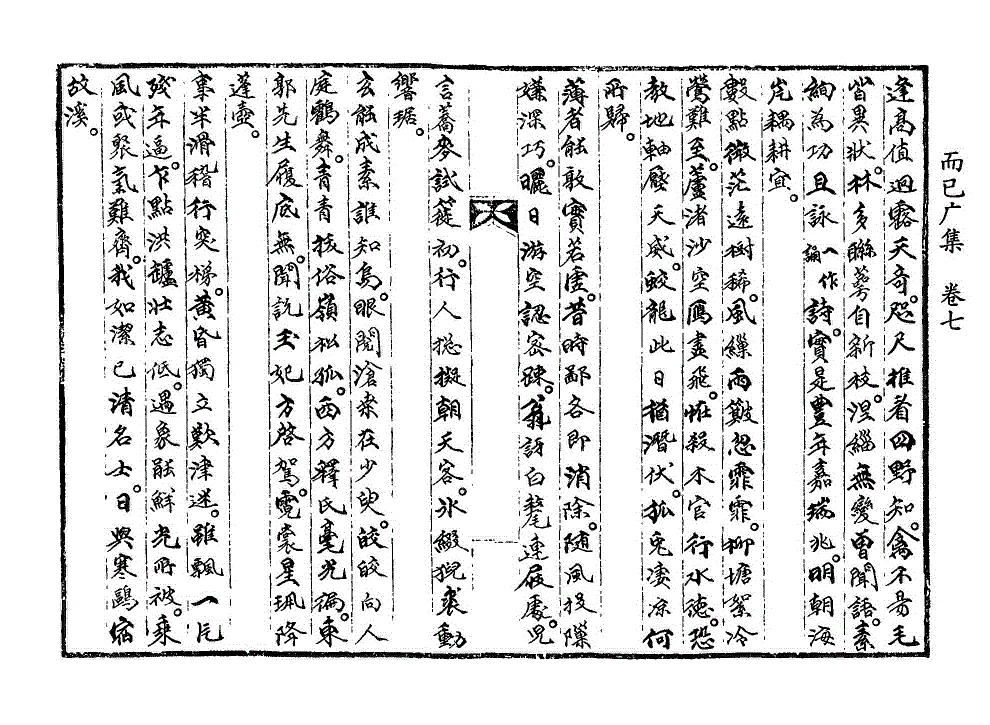 而已广集 卷七
逢高值迥露天奇。咫尺推看四野知。禽不易毛
皆異狀。林多聯萼自新枝。涅緇無變曾聞語。素
絢為功且詠一作誦詩。實是豐年嘉瑞兆。明朝海
岸耦耕宜。
數點微茫遠樹稀。風纙雨皺忽霏霏。柳塘絮冷
鶯難至。蘆渚沙空鴈盡飛。惟殺木官行水德。恐
教地軸壓天威。蛟龍此日猶潛伏。狐兔凄凉何
所歸。
薄者能敦實若虛。昔時鄙吝即消除。隨風投隟
嫌深巧。曬日游空認密踈。翁訝白氂連屐處。児
言蕎麥試簁初。行人摐擬朝天客。氷綴猊裘動
響琚。
玄能成素誰知烏。眼閱滄桑在少臾。皎皎向人
庭鶴舞。青青挨俗嶺松孤。西方釋氏毫光徧。東
郭先生履底無。聞説玉妃方啓駕。霓裳星珮降
蓬壺。
稟半滑稽行突梯。黄昏獨立歎津迷。雖飄一氏
殘年逼。乍點洪鑪壯志低。過象能鮮光所被。乘
風或聚氣難齊。我如潔已清名士。日與寒鷗宿
故溪。